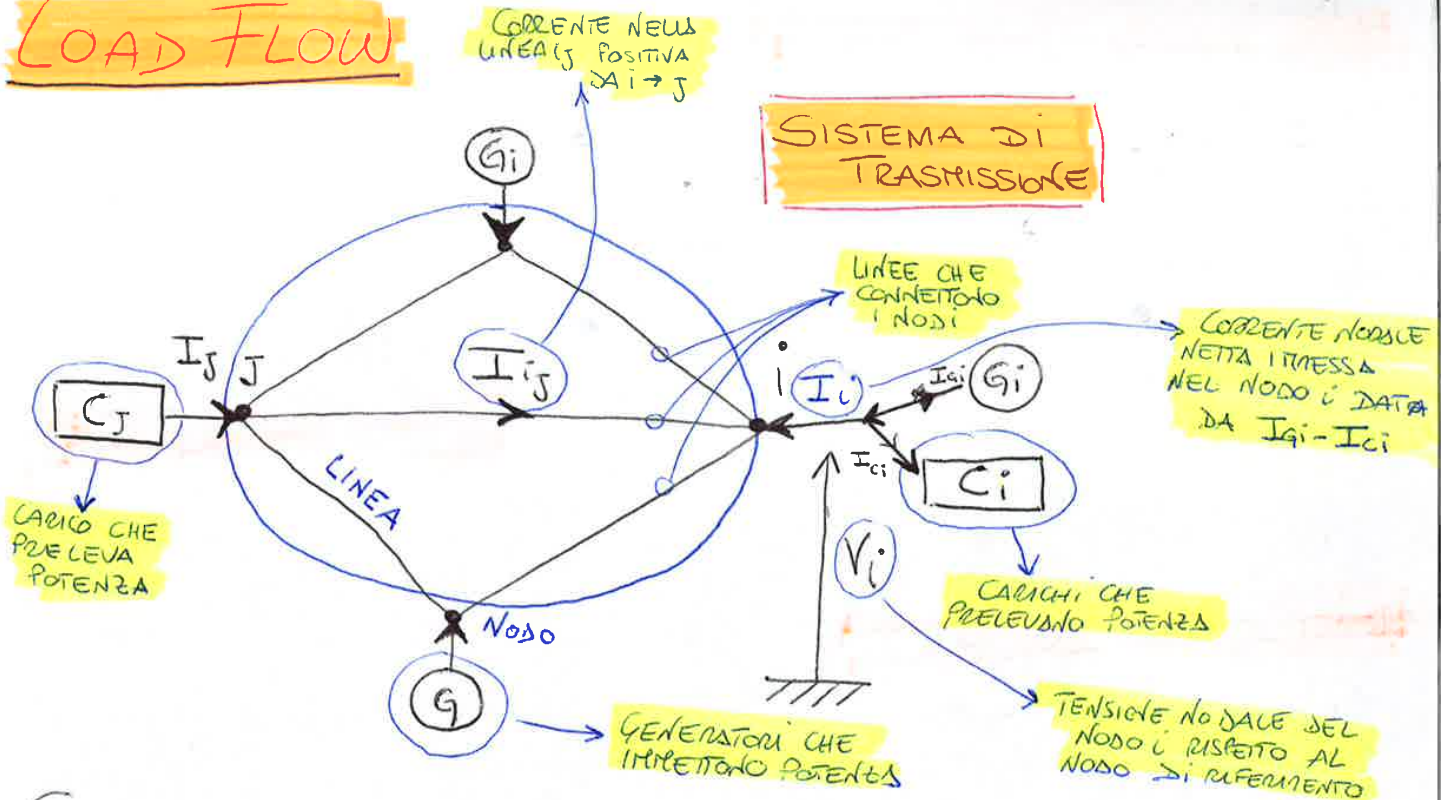 LOAD FLOW
CORRENTE NELLA
LINEA ij POSITIVA
DA i → J
SISTEMA DI
TRASMISSIONE
Gi
LINEE CHE
CONNETTONO
I NODI
CORRENTE NODALE
NETTA IMMESSA
NEL NODO i DATA
DA IGi - ICi
IJ
J
CJ
Iij
i
Ii
IGi
Gi
ICi
Ci
LINEA
CARICO CHE
PRELEVA
POTENZA
Vi
CARICHI CHE
PRELEVANO POTENZA
NODO
G
GENERATORI CHE
IMMETTONO POTENZA
TENSIONE NODALE DEL
NODO i RISPETTO AL
NODO DI RIFERIMENTO